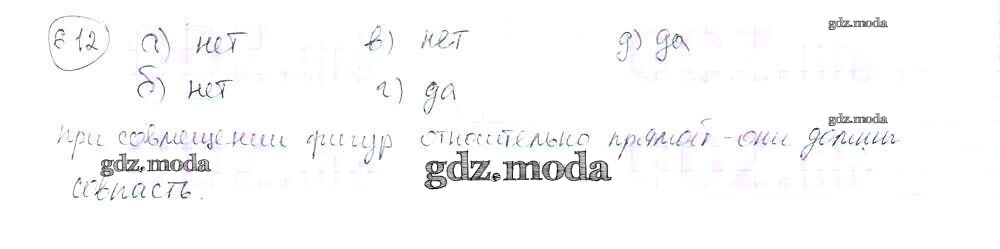 612 а) нет в) нет д) да
б) нет г) да
При совмещении фигур относительно прямой - они должны
совпасть.
gdz.moda
gdz.moda
gdz.moda
gdz.moda